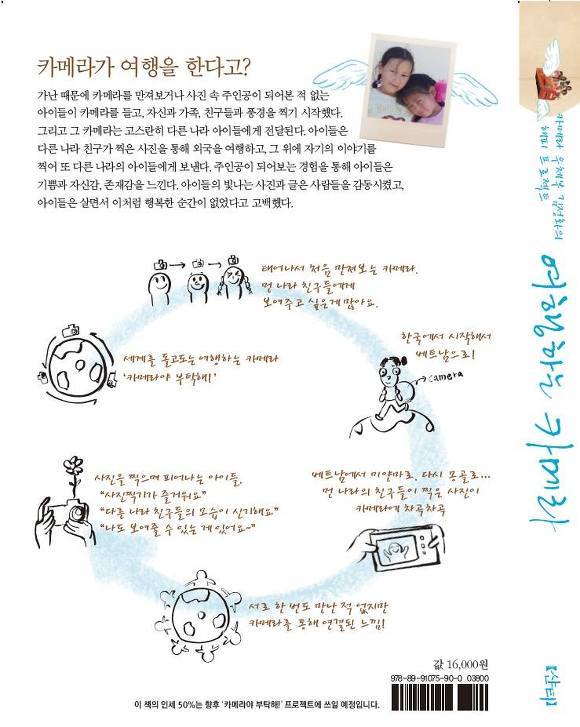 카메라가 여행을 한다고?
가난 때문에 카메라를 만져보거나 사진 속 주인공이 되어본 적 없는
아이들이 카메라를 들고, 자신과 가족, 친구들과 풍경을 찍기 시작했다.
그리고 그 카메라는 고스란히 다른 나라 아이들에게 전달된다. 아이들은
다른 나라 친구가 찍은 사진을 통해 외국을 여행하고, 그 위에 자기의 이야기를
찍어 또 다른 나라의 아이들에게 보낸다. 주인공이 되어보는 경험을 통해 아이들은
기쁨과 자신감, 존재감을 느낀다. 아이들의 빛나는 사진과 글은 사람들을 감동시켰고,
아이들은 살면서 이처럼 행복한 순간이 없었다고 고백했다.
태어나서 처음 만져보는 카메라.
먼 나라 친구들에게
보여주고 싶은게 많아요.
한국에서 시작해서
베트남으로!
camera
베트남에서 미얀마로, 다시 몽골로...
먼 나라의 친구들이 찍은 사진이
카메라에 차곡차곡
서로 한 번도 만난 적 없지만
카메라를 통해 연결된 느낌!
사진을 찍으며 피어나는 아이들.
"사진찍기가 즐거워요"
"다른 나라 친구들의 모습이 신기해요"
"나도 보여줄 수 있는 게 있어요~"
세계를 돌고도는 여행하는 카메라
'카메라야 부탁해!'
값 16,000원
978-89-91075-90-0 03800
이 책의 인세 50%는 향후 '카메라야 부탁해!' 프로젝트에 쓰일 예정입니다.
카메라 우체부 김정화의
해피 프로젝트
여행하는 카메라
[산티]